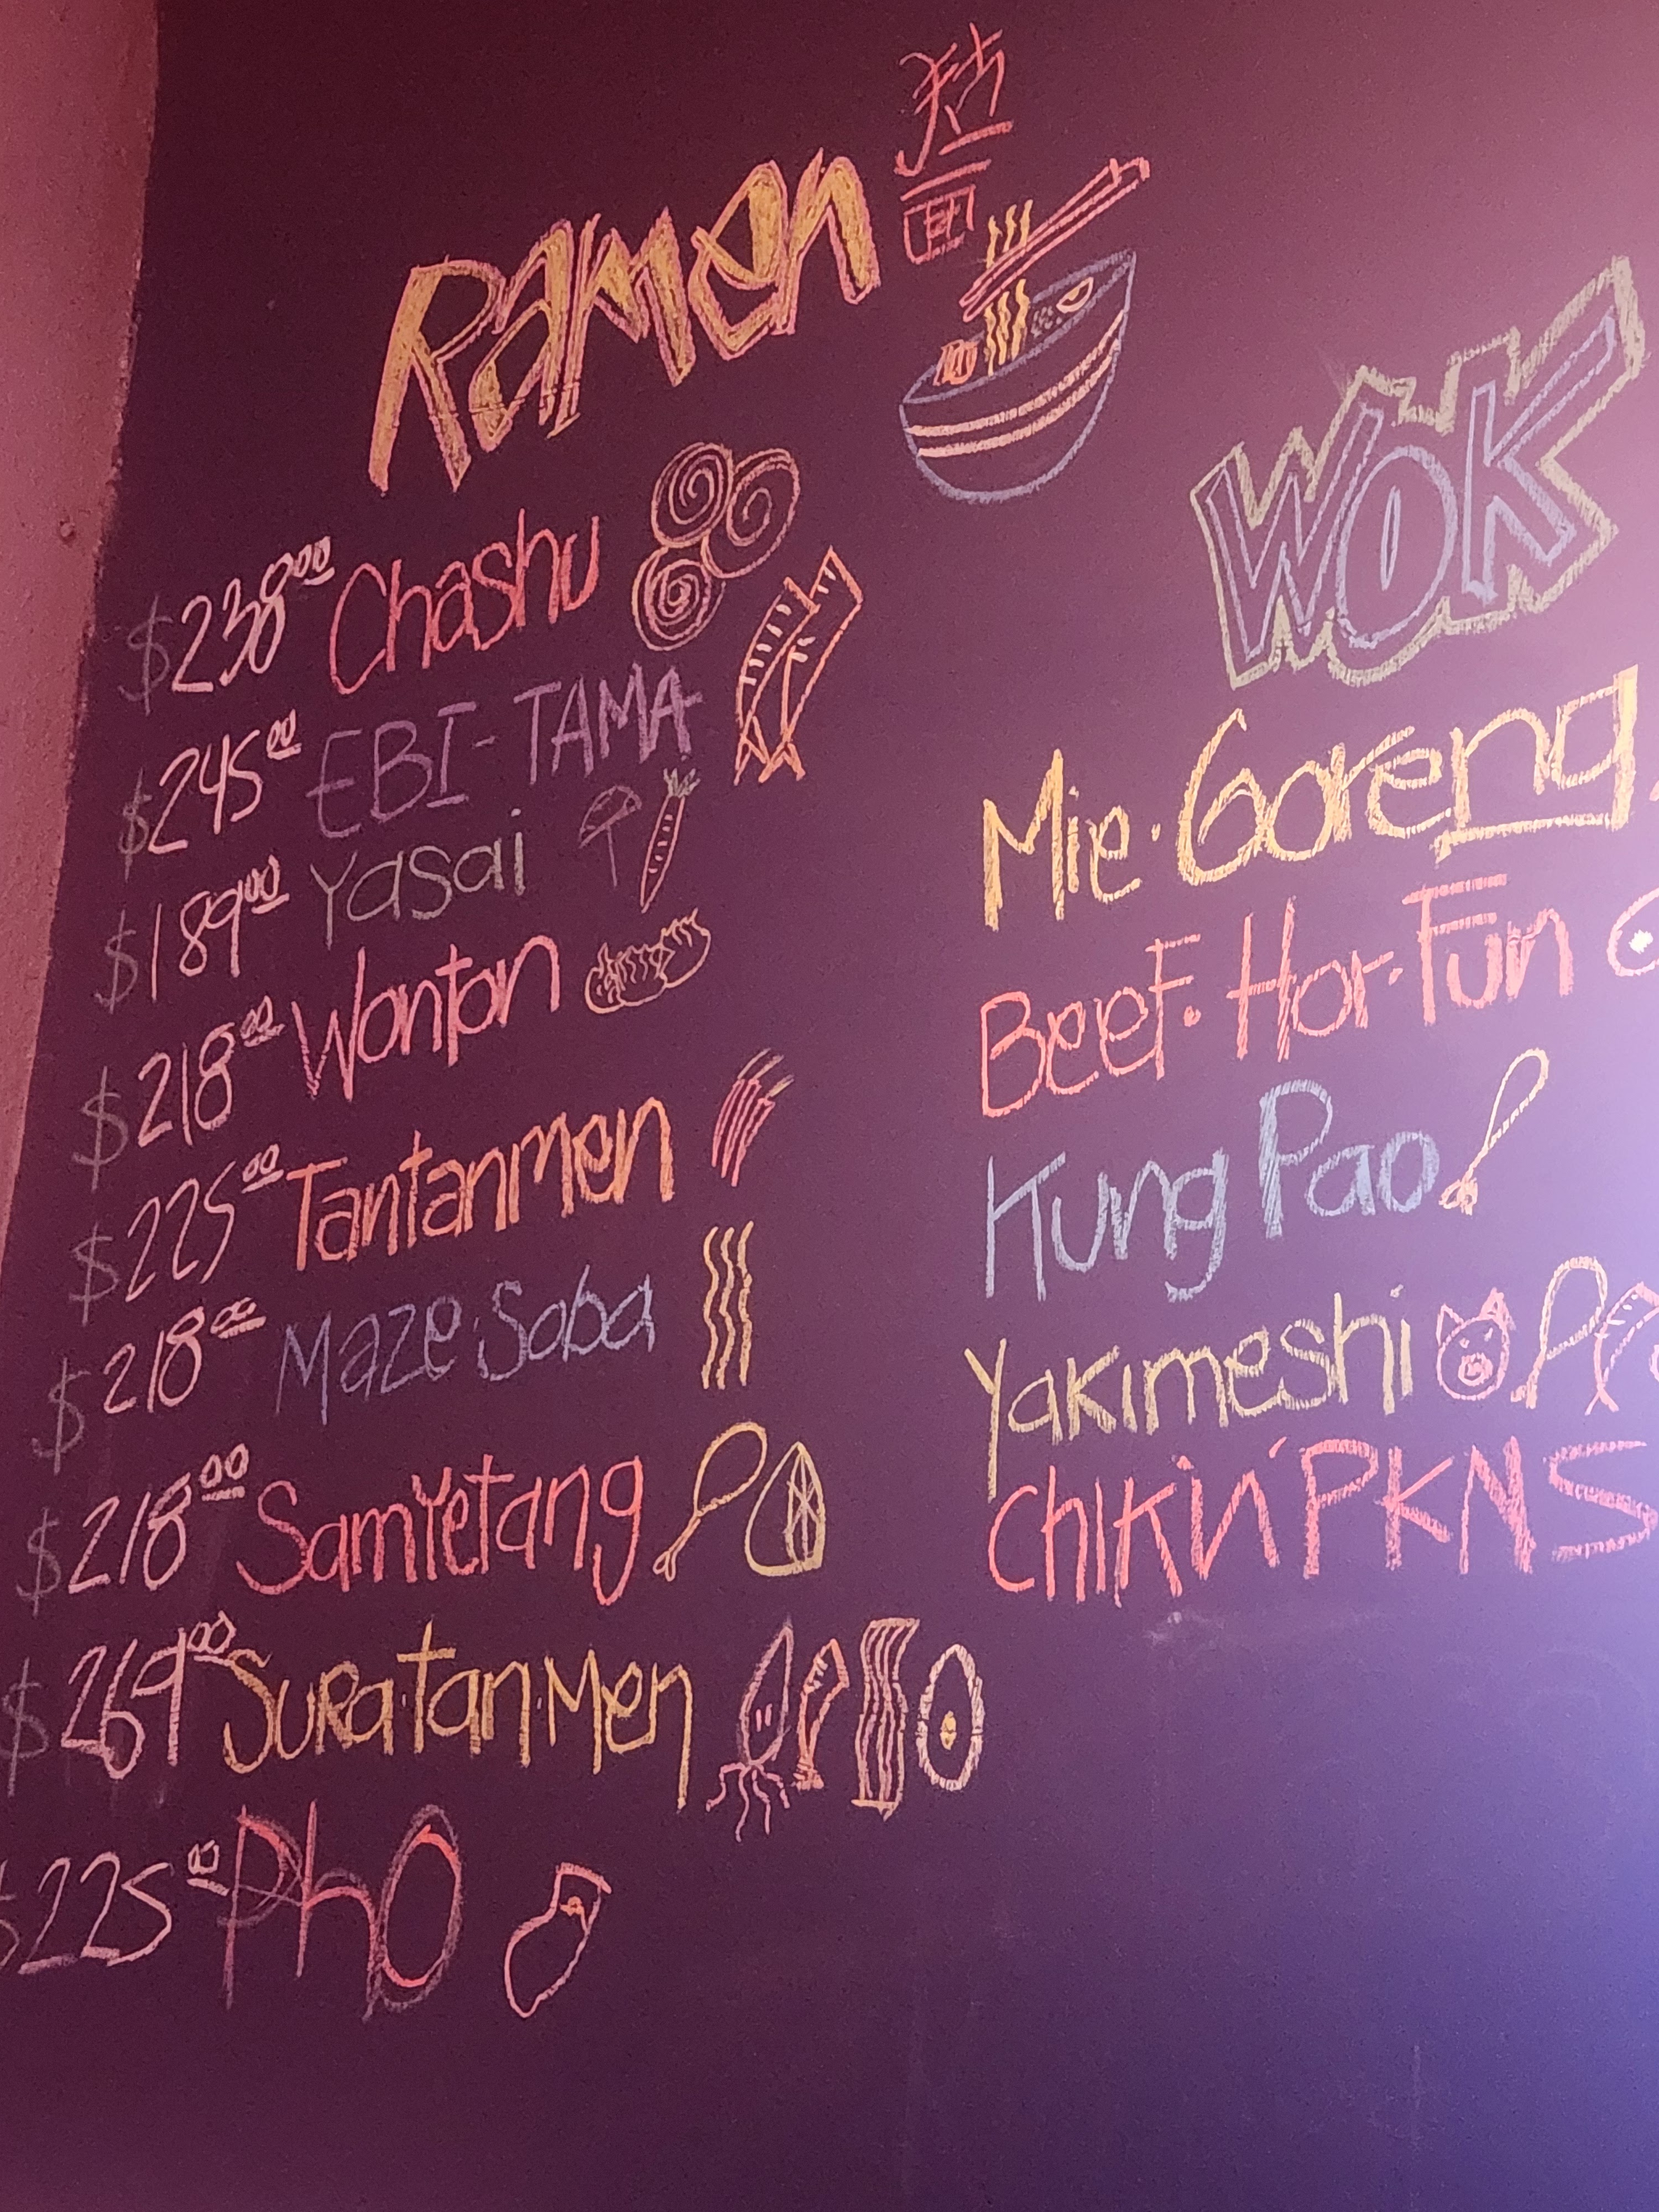 Ramen
$238.00 Chashu
$245.00 EBI-TAMA
$189.00 Yasai
$218.00 Wonton
$225.00 Tantanmen
$218.00 Maze·Soba
$218.00 SamYetang
$269.00 SuRa·tan·Men
$225.00 PhO
WOK
Mie·Goreng
Beef·Hor·Fun
Kung Pao
Yakimeshi
ChIKin' PKNS